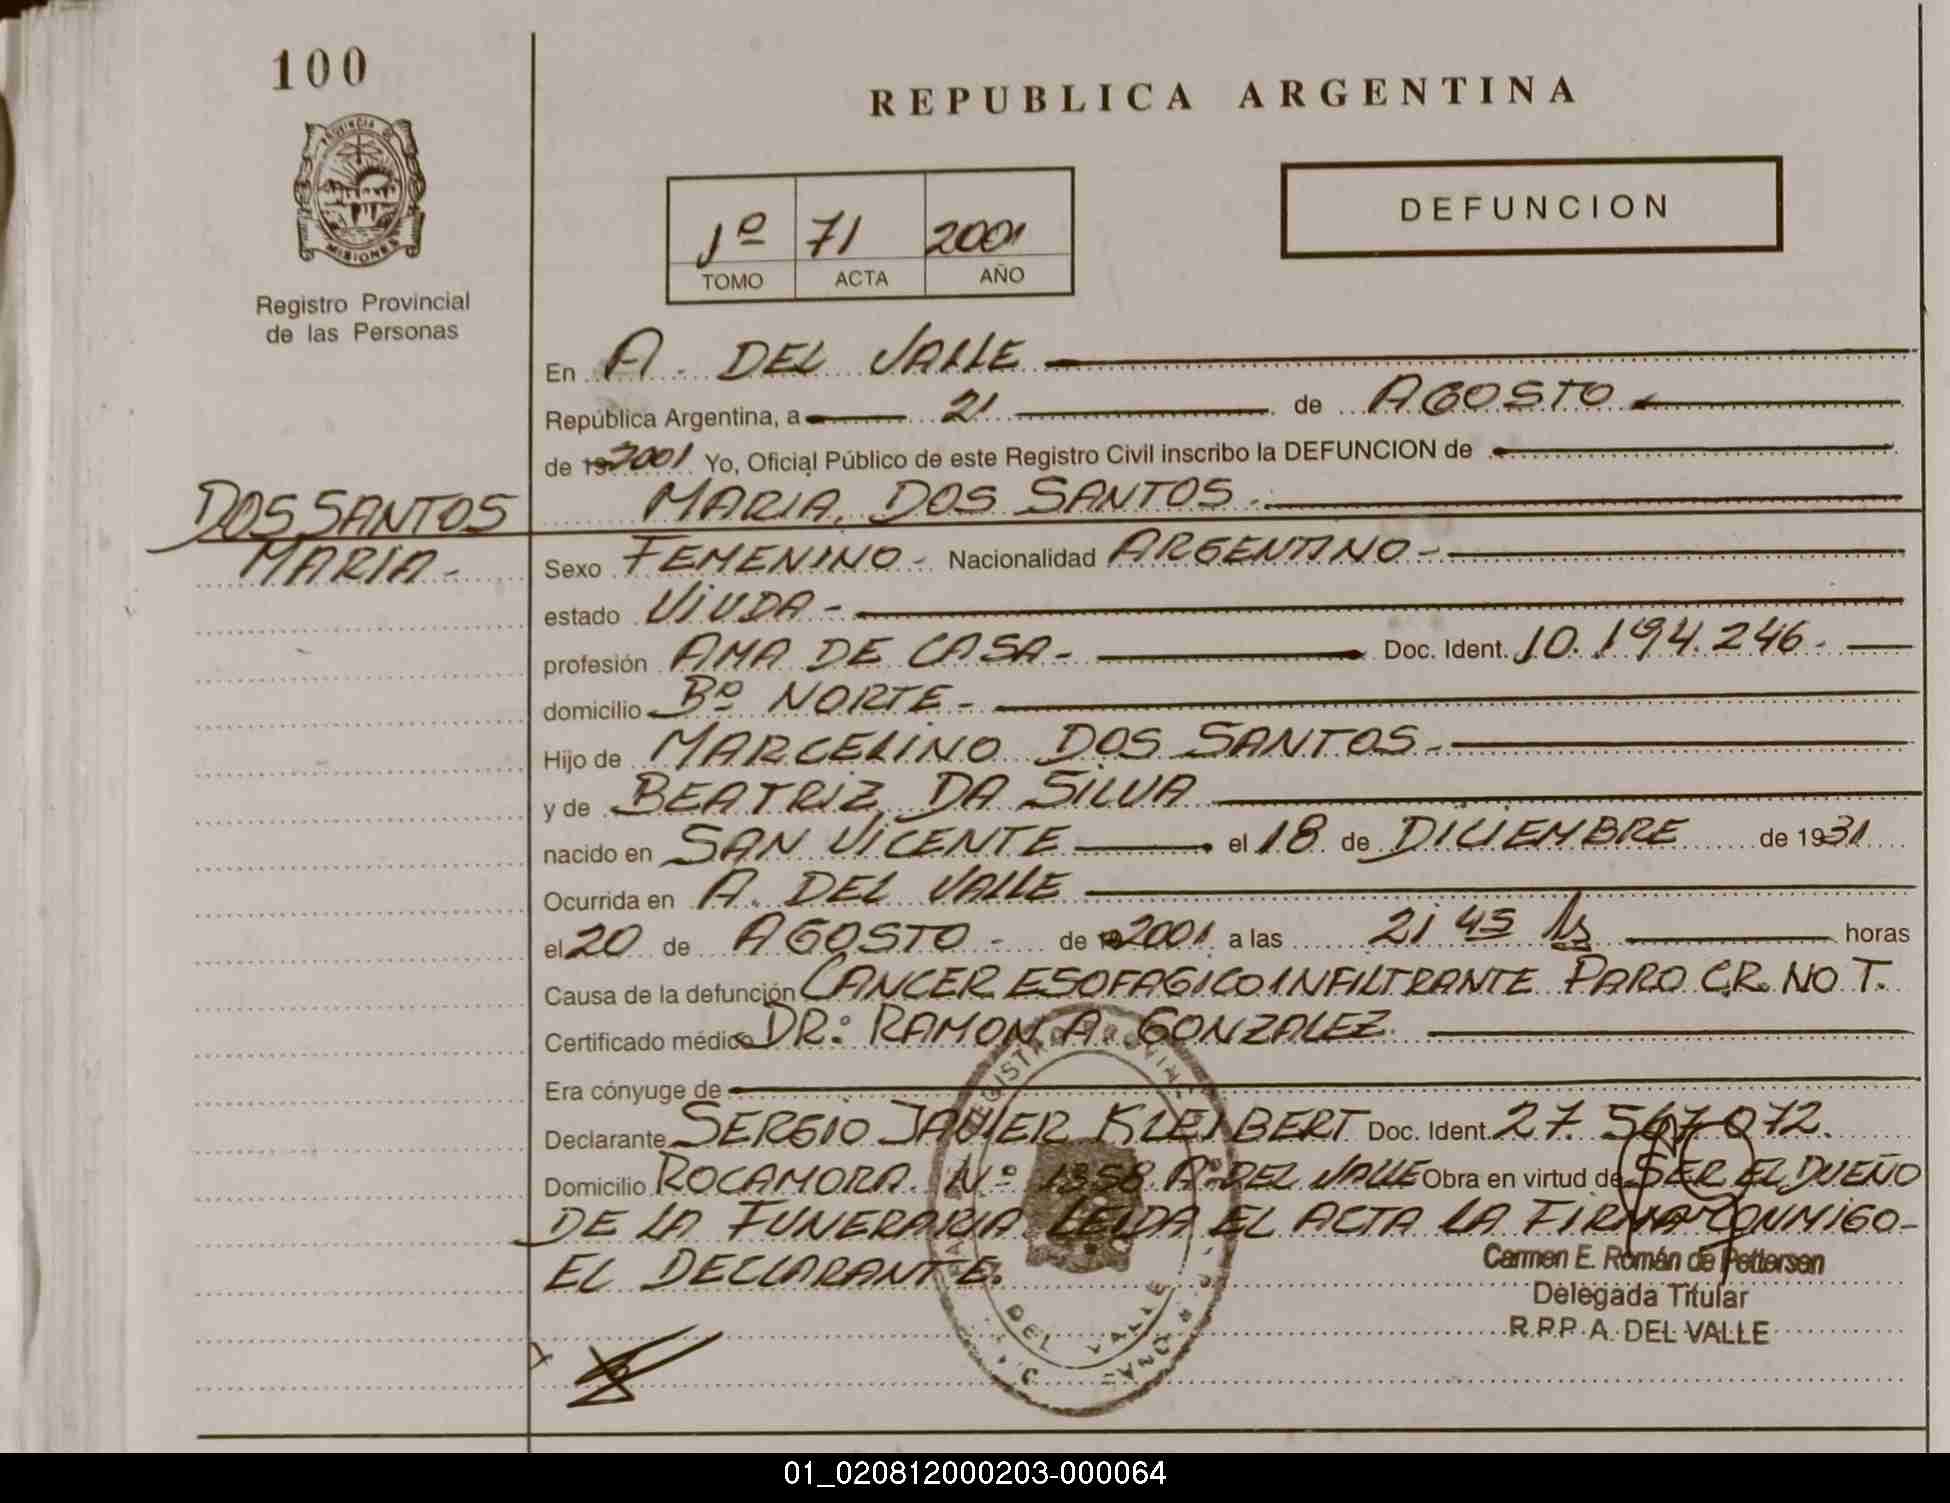 100
REPUBLICA ARGENTINA
PROVINCIA DE
MISIONES
Registro Provincial
de las Personas
1º 71 2001
TOMO ACTA AÑO
DEFUNCION
En A. DEL VALLE
República Argentina, a 21 de AGOSTO
de 192001 Yo, Oficial Público de este Registro Civil inscribo la DEFUNCION de
DOS SANTOS
MARIA DOS SANTOS.
MARIA-
Sexo FEMENINO- Nacionalidad ARGENTINO-
estado VIUDA-
profesión AMA DE CASA- Doc. Ident. 10.194.246-
domicilio Bº NORTE-
Hijo de MARCELINO DOS SANTOS-
y de BEATRIZ DA SILVA
nacido en SAN VICENTE el 18 de DICIEMBRE de 1931
Ocurrida en A. DEL VALLE
el 20 de AGOSTO- de 2001 a las 21 45 hs horas
Causa de la defunción CANCER ESOFAGICO INFILTRANTE PARO C.R. NO T.
Certificado médico DR: RAMON A. GONZALEZ.
Era cónyuge de
Declarante SERGIO JAVIER KLEIBERT Doc. Ident. 27.567.072.
Domicilio ROCAMORA Nº 1358 Aº DEL VALLE Obra en virtud de SER EL DUEÑO
DE LA FUNERARIA LEIDA EL ACTA LA FIRMA CONMIGO-
EL DECLARANTE.
Carmen E. Román de Pettersen
Delegada Titular
R.P.P. A. DEL VALLE
DEL VALLE
01_020812000203-000064